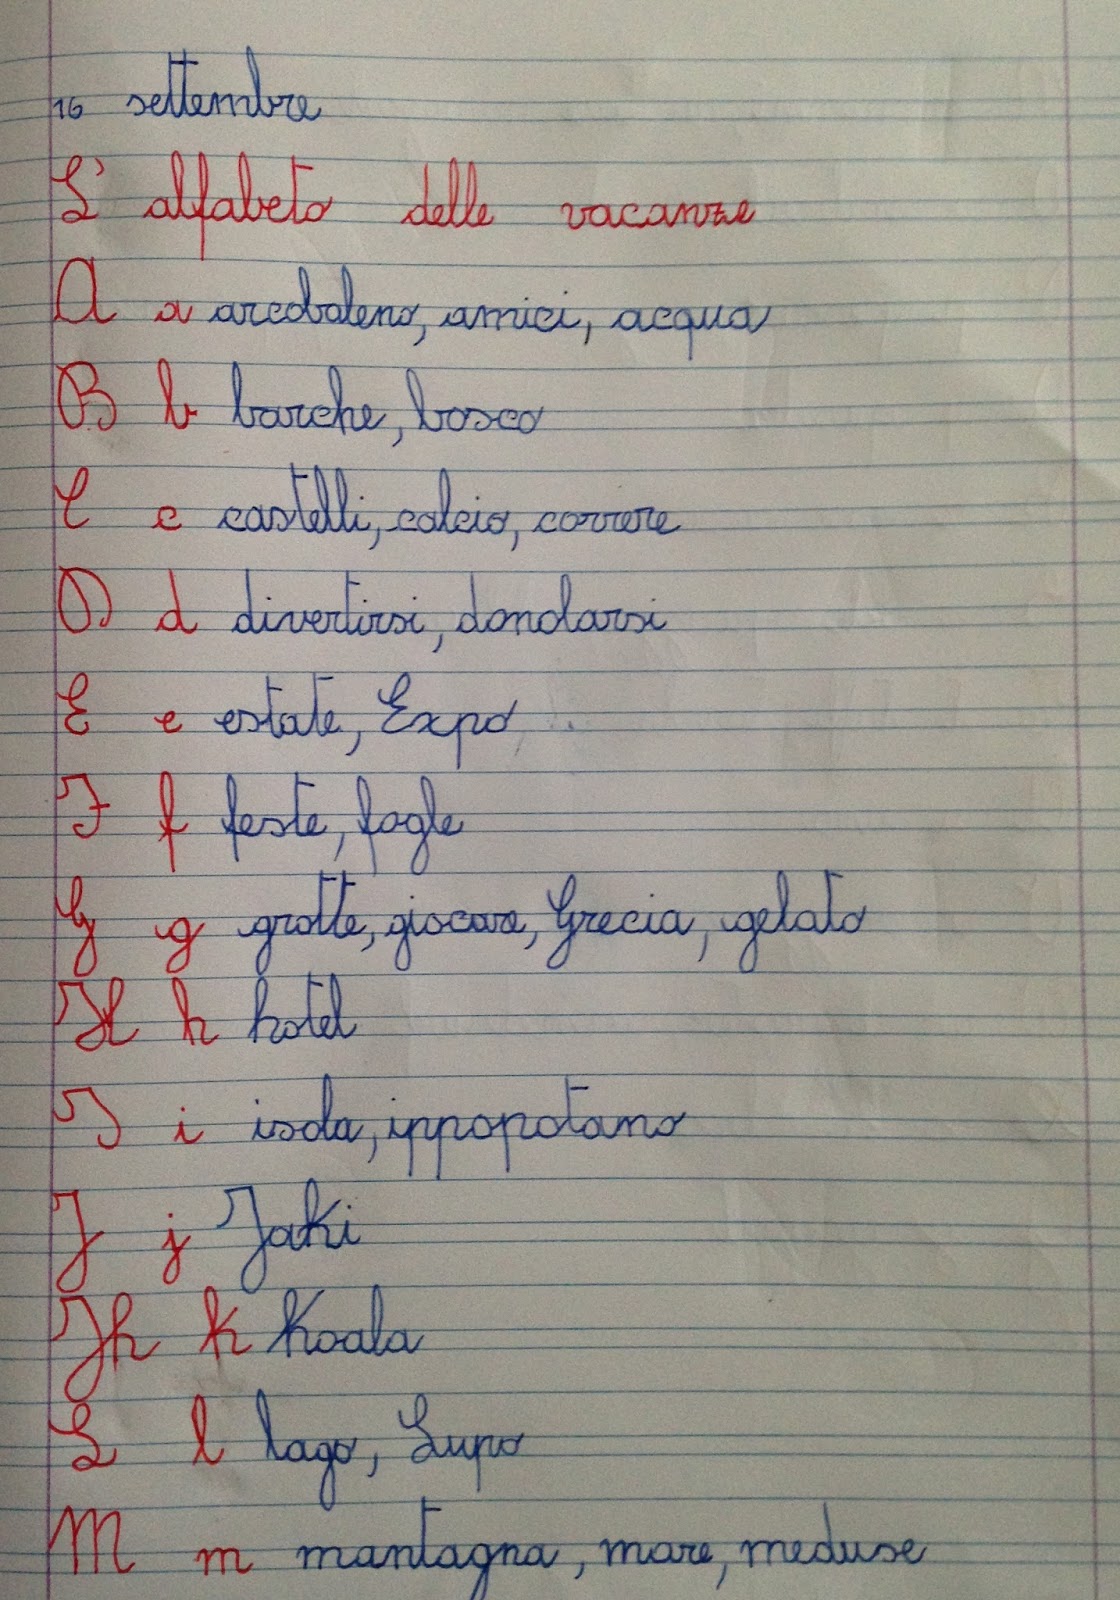 16 settembre
L'alfabeto delle vacanze
A a arcobaleno, amici, acqua
B b barche, bosco
C c castelli, calcio, correre
D d divertirsi, dondolarsi
E e estate, Expo
F f feste, fogle
G g grotte, giocare, Grecia, gelato
H h hotel
I i isola, ippopotamo
J j Jaki
K k koala
L l lago, Lupo
M m mantagna, mare, meduse